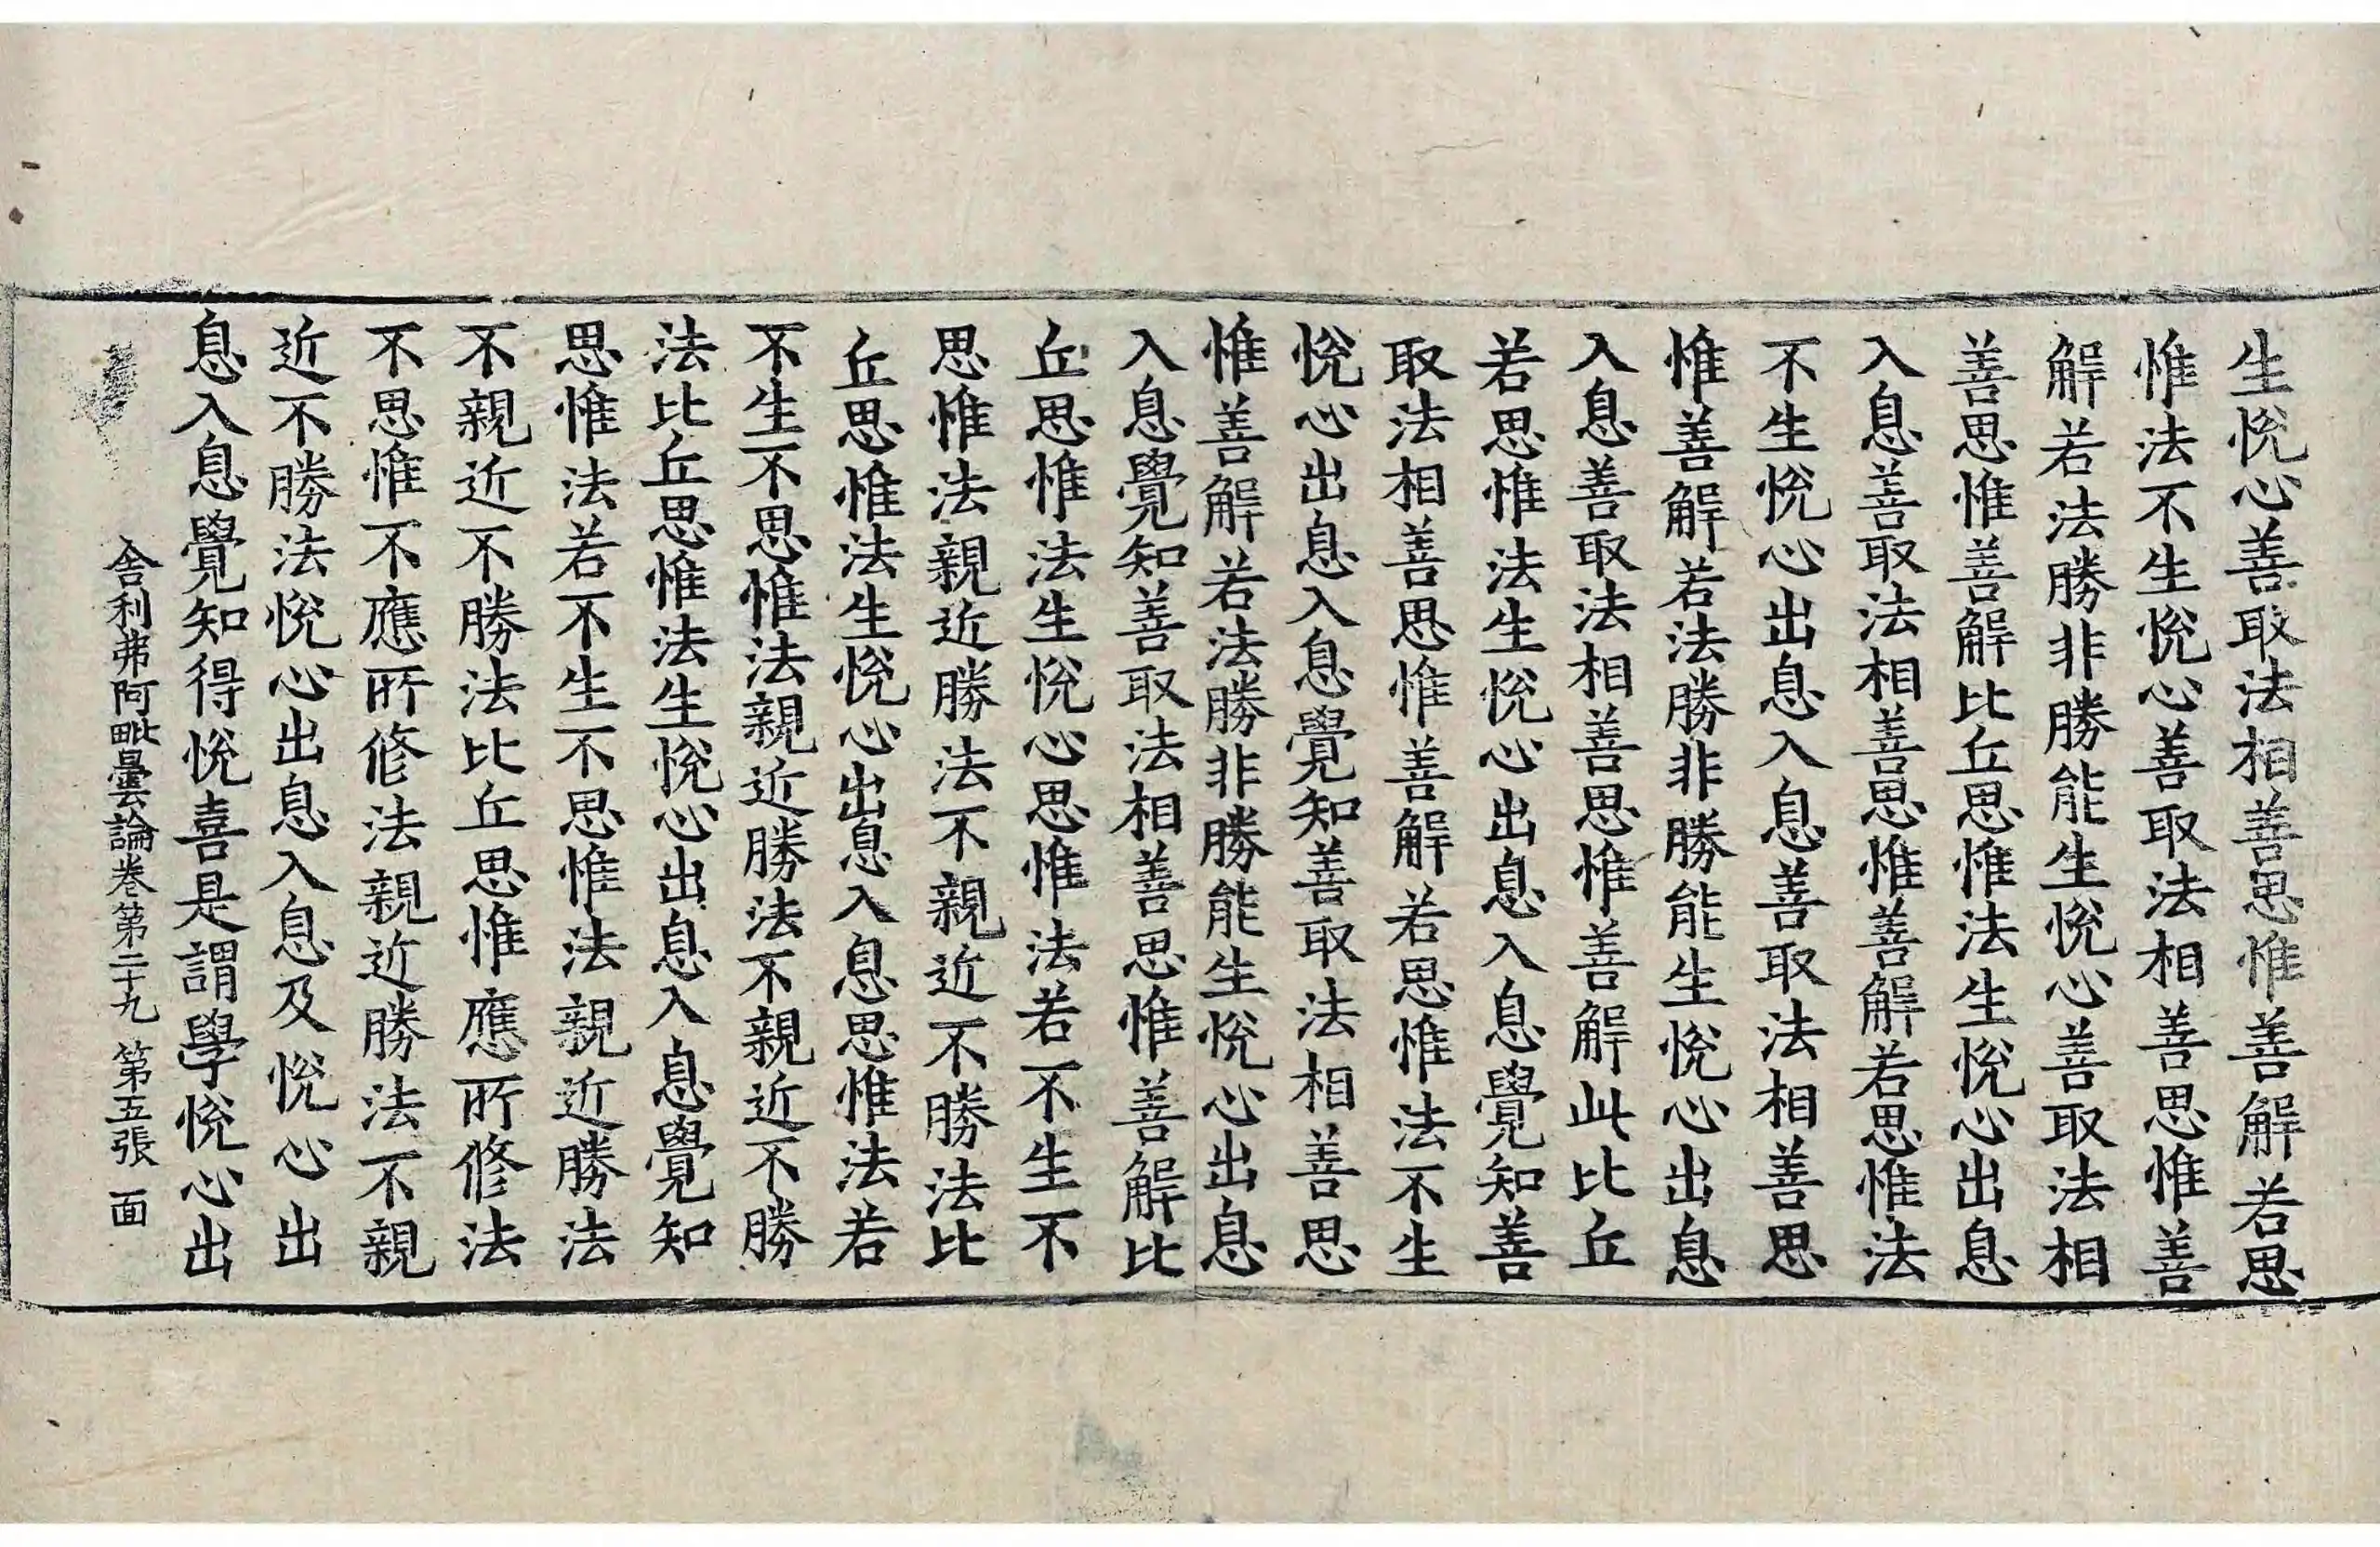 生悅心善取法相善思惟善解若思
惟法不生悅心善取法相善思惟善
解若法勝非勝能生悅心善取法相
善思惟善解比丘思惟法生悅心出息
入息善取法相善思惟善解若思惟法
不生悅心出息入息善取法相善思
惟善解若法勝非勝能生悅心出息
入息善取法相善思惟善解此比丘
若思惟法生悅心出息入息覺知善
取法相善思惟善解若思惟法不生
悅心出息入息覺知善取法相善思
惟善解若法勝非勝能生悅心出息
入息覺知善取法相善思惟善解比
丘思惟法生悅心思惟法若不生不
思惟法親近勝法不親近不勝法比
丘思惟法生悅心出息入息思惟法若
不生不思惟法親近勝法不親近不勝
法比丘思惟法生悅心出息入息覺知
思惟法若不生不思惟法親近勝法
不親近不勝法比丘思惟應所修法
不思惟不應所修法親近勝法不親
近不勝法悅心出息入息及悅心出
息入息覺知得悅喜是謂學悅心出
舍利弗阿毗曇論卷第二十九 第五張 面